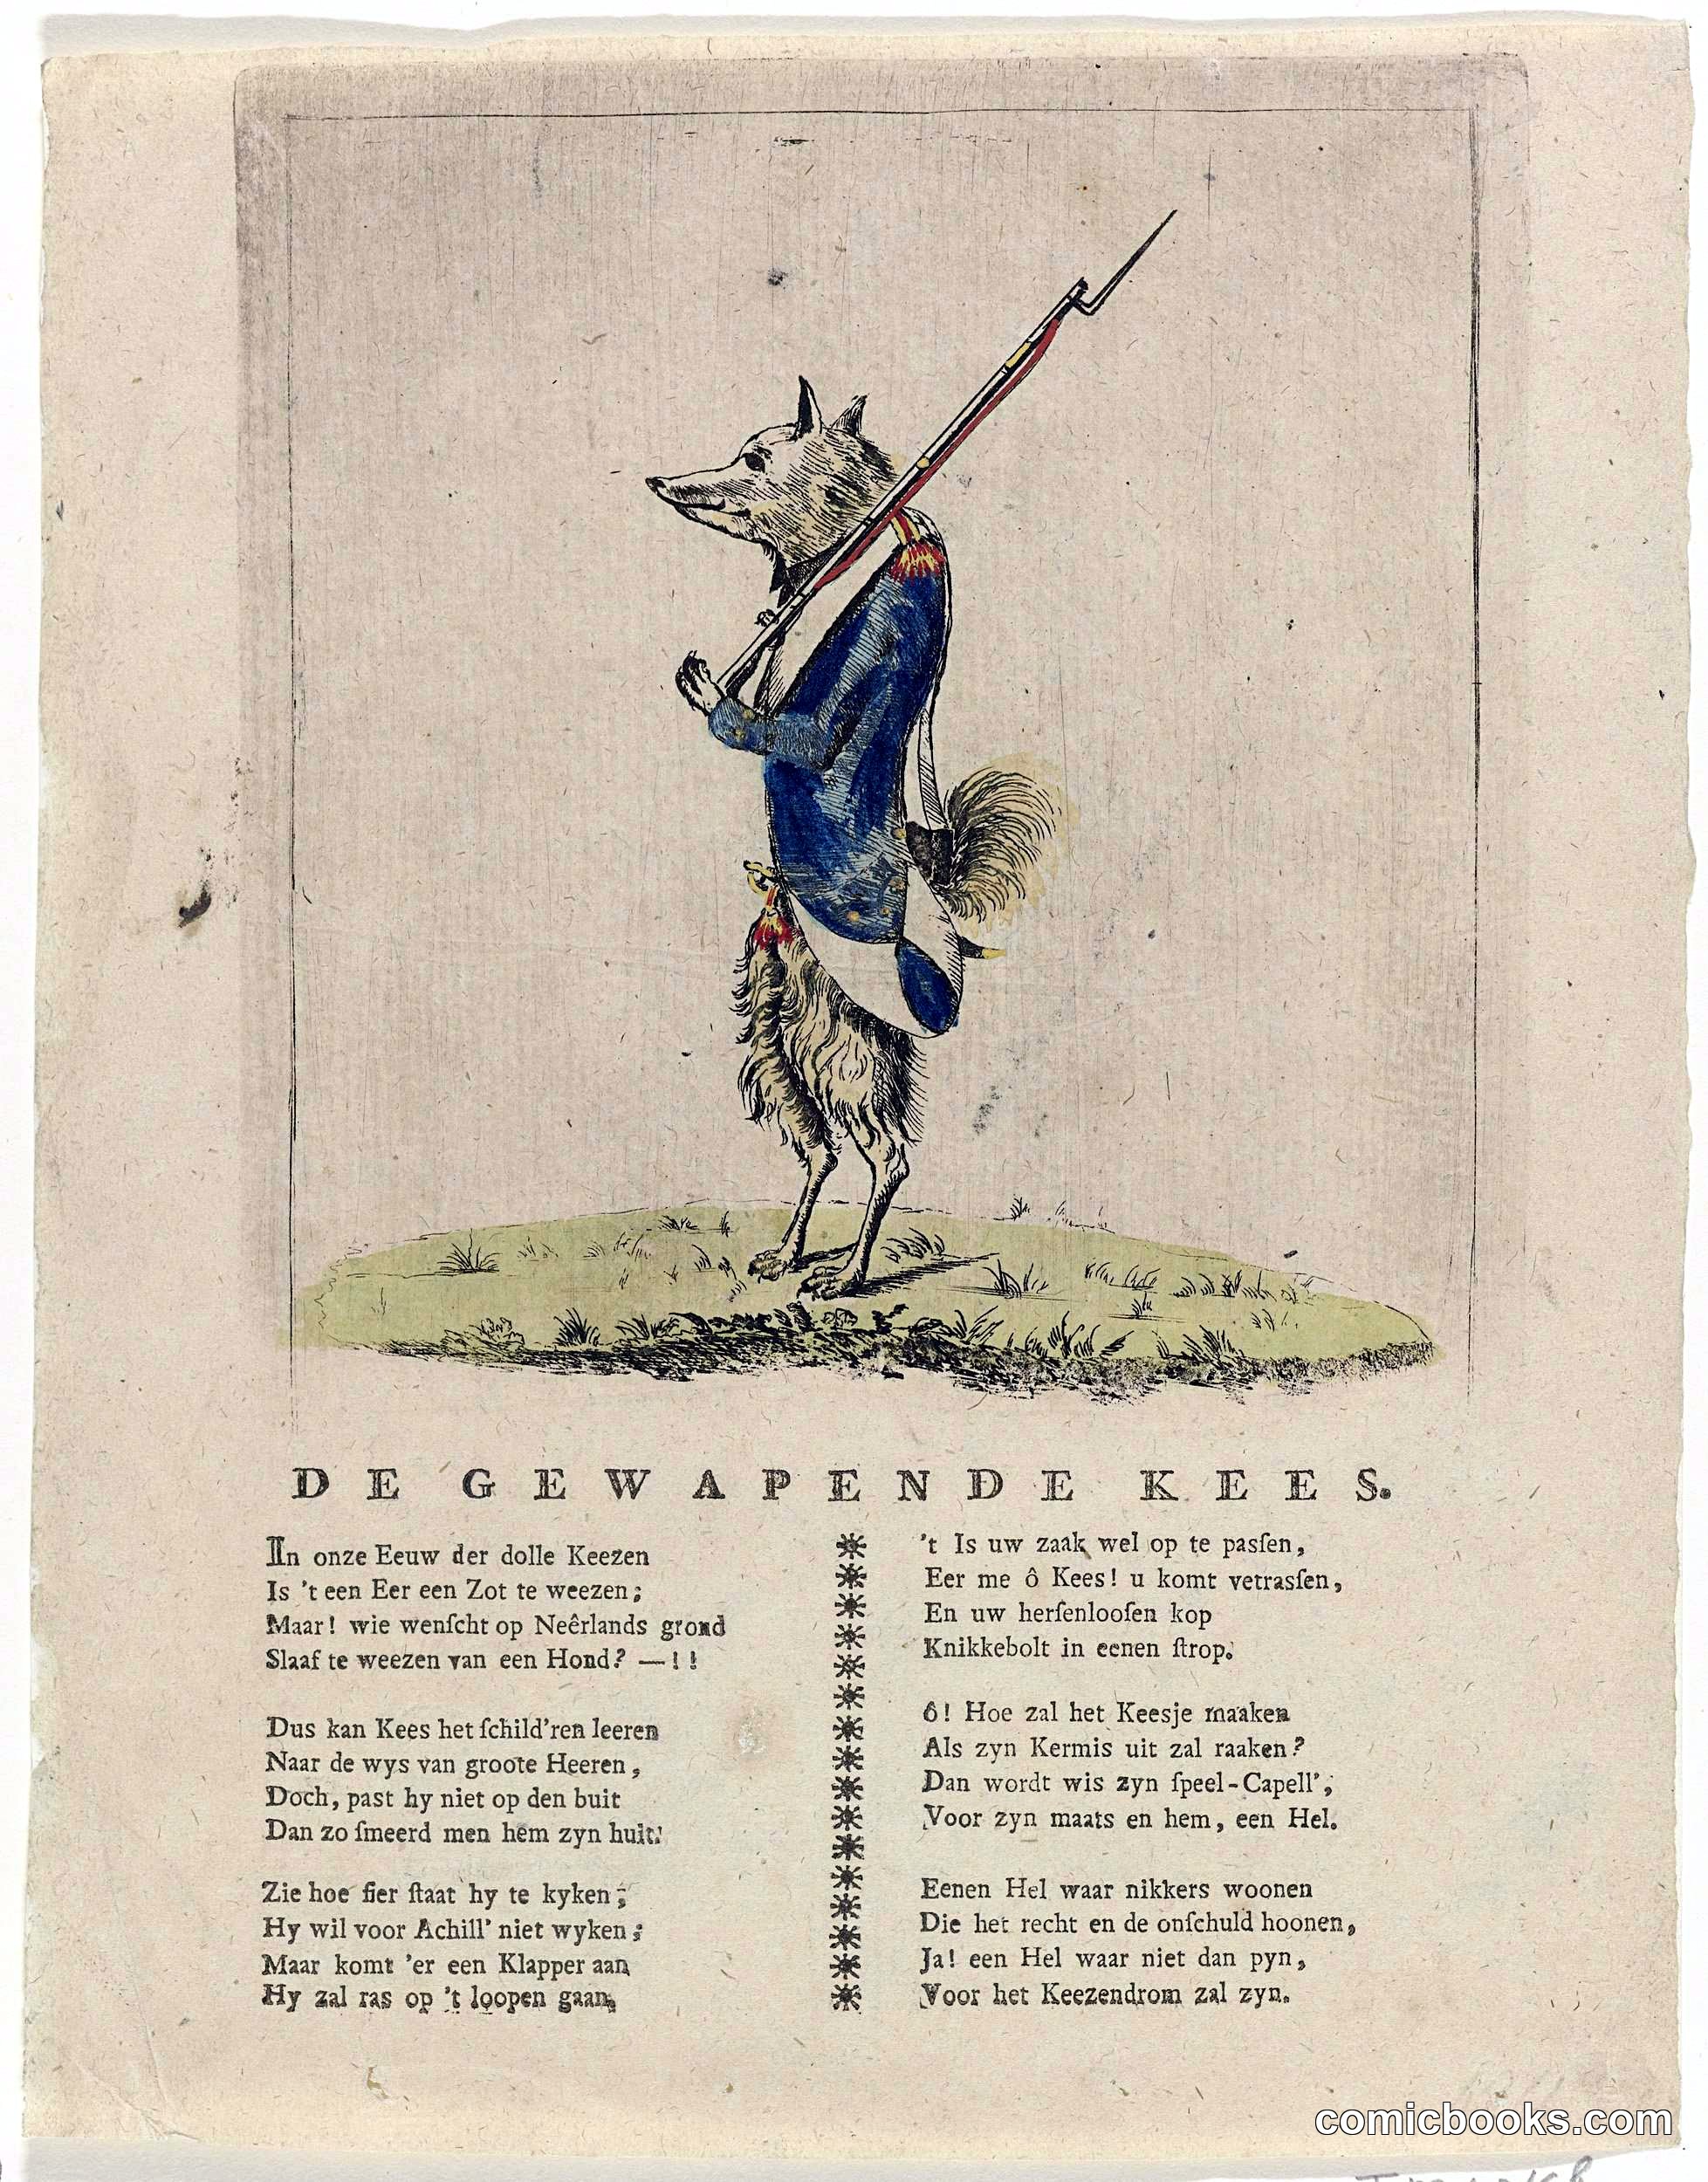 DE GEWAPENDE KEES.
In onze Eeuw der dolle Keezen
Is 't een Eer een Zot te weezen;
Maar! wie wenſcht op Neêrlands grond
Slaaf te weezen van een Hond? —!!
Dus kan Kees het ſchild'ren leeren
Naar de wys van groote Heeren,
Doch, past hy niet op den buit
Dan zo ſmeerd men hem zyn huit!
Zie hoe fier ſtaat hy te kyken;
Hy wil voor Achill' niet wyken;
Maar komt 'er een Klapper aan
Hy zal ras op 't loopen gaan.
't Is uw zaak wel op te pasſen,
Eer me ô Kees! u komt vetrasſen,
En uw herſenlooſen kop
Knikkebolt in eenen ſtrop.
ô! Hoe zal het Keesje maaken
Als zyn Kermis uit zal raaken?
Dan wordt wis zyn ſpeel-Capell',
Voor zyn maats en hem, een Hel.
Eenen Hel waar nikkers woonen
Die het recht en de onſchuld hoonen,
Ja! een Hel waar niet dan pyn,
Voor het Keezendrom zal zyn.
comicbooks.com